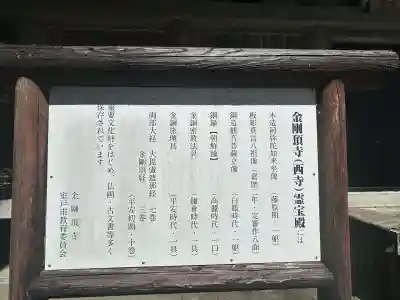 金剛頂寺(西寺)霊宝殿には
木造阿弥陀如来坐像 (藤原期、一躯)
板彫真言八祖像 (嘉暦二年・定審作八面)
銅造観音菩薩立像 (白鳳時代・一躯)
銅鐘【朝鮮鐘】 (高麗時代・一口)
金銅密教法具 (鎌倉時代・一具)
金銅旅壇具 (平安時代・一具)
両部大経 大毘盧遮那経 七巻
金剛頂経 三巻
(平安初期・十巻)
重要文化財をはじめ、仏画・古文書等多く
保存されています。
金剛頂寺
室戸市教育委員会